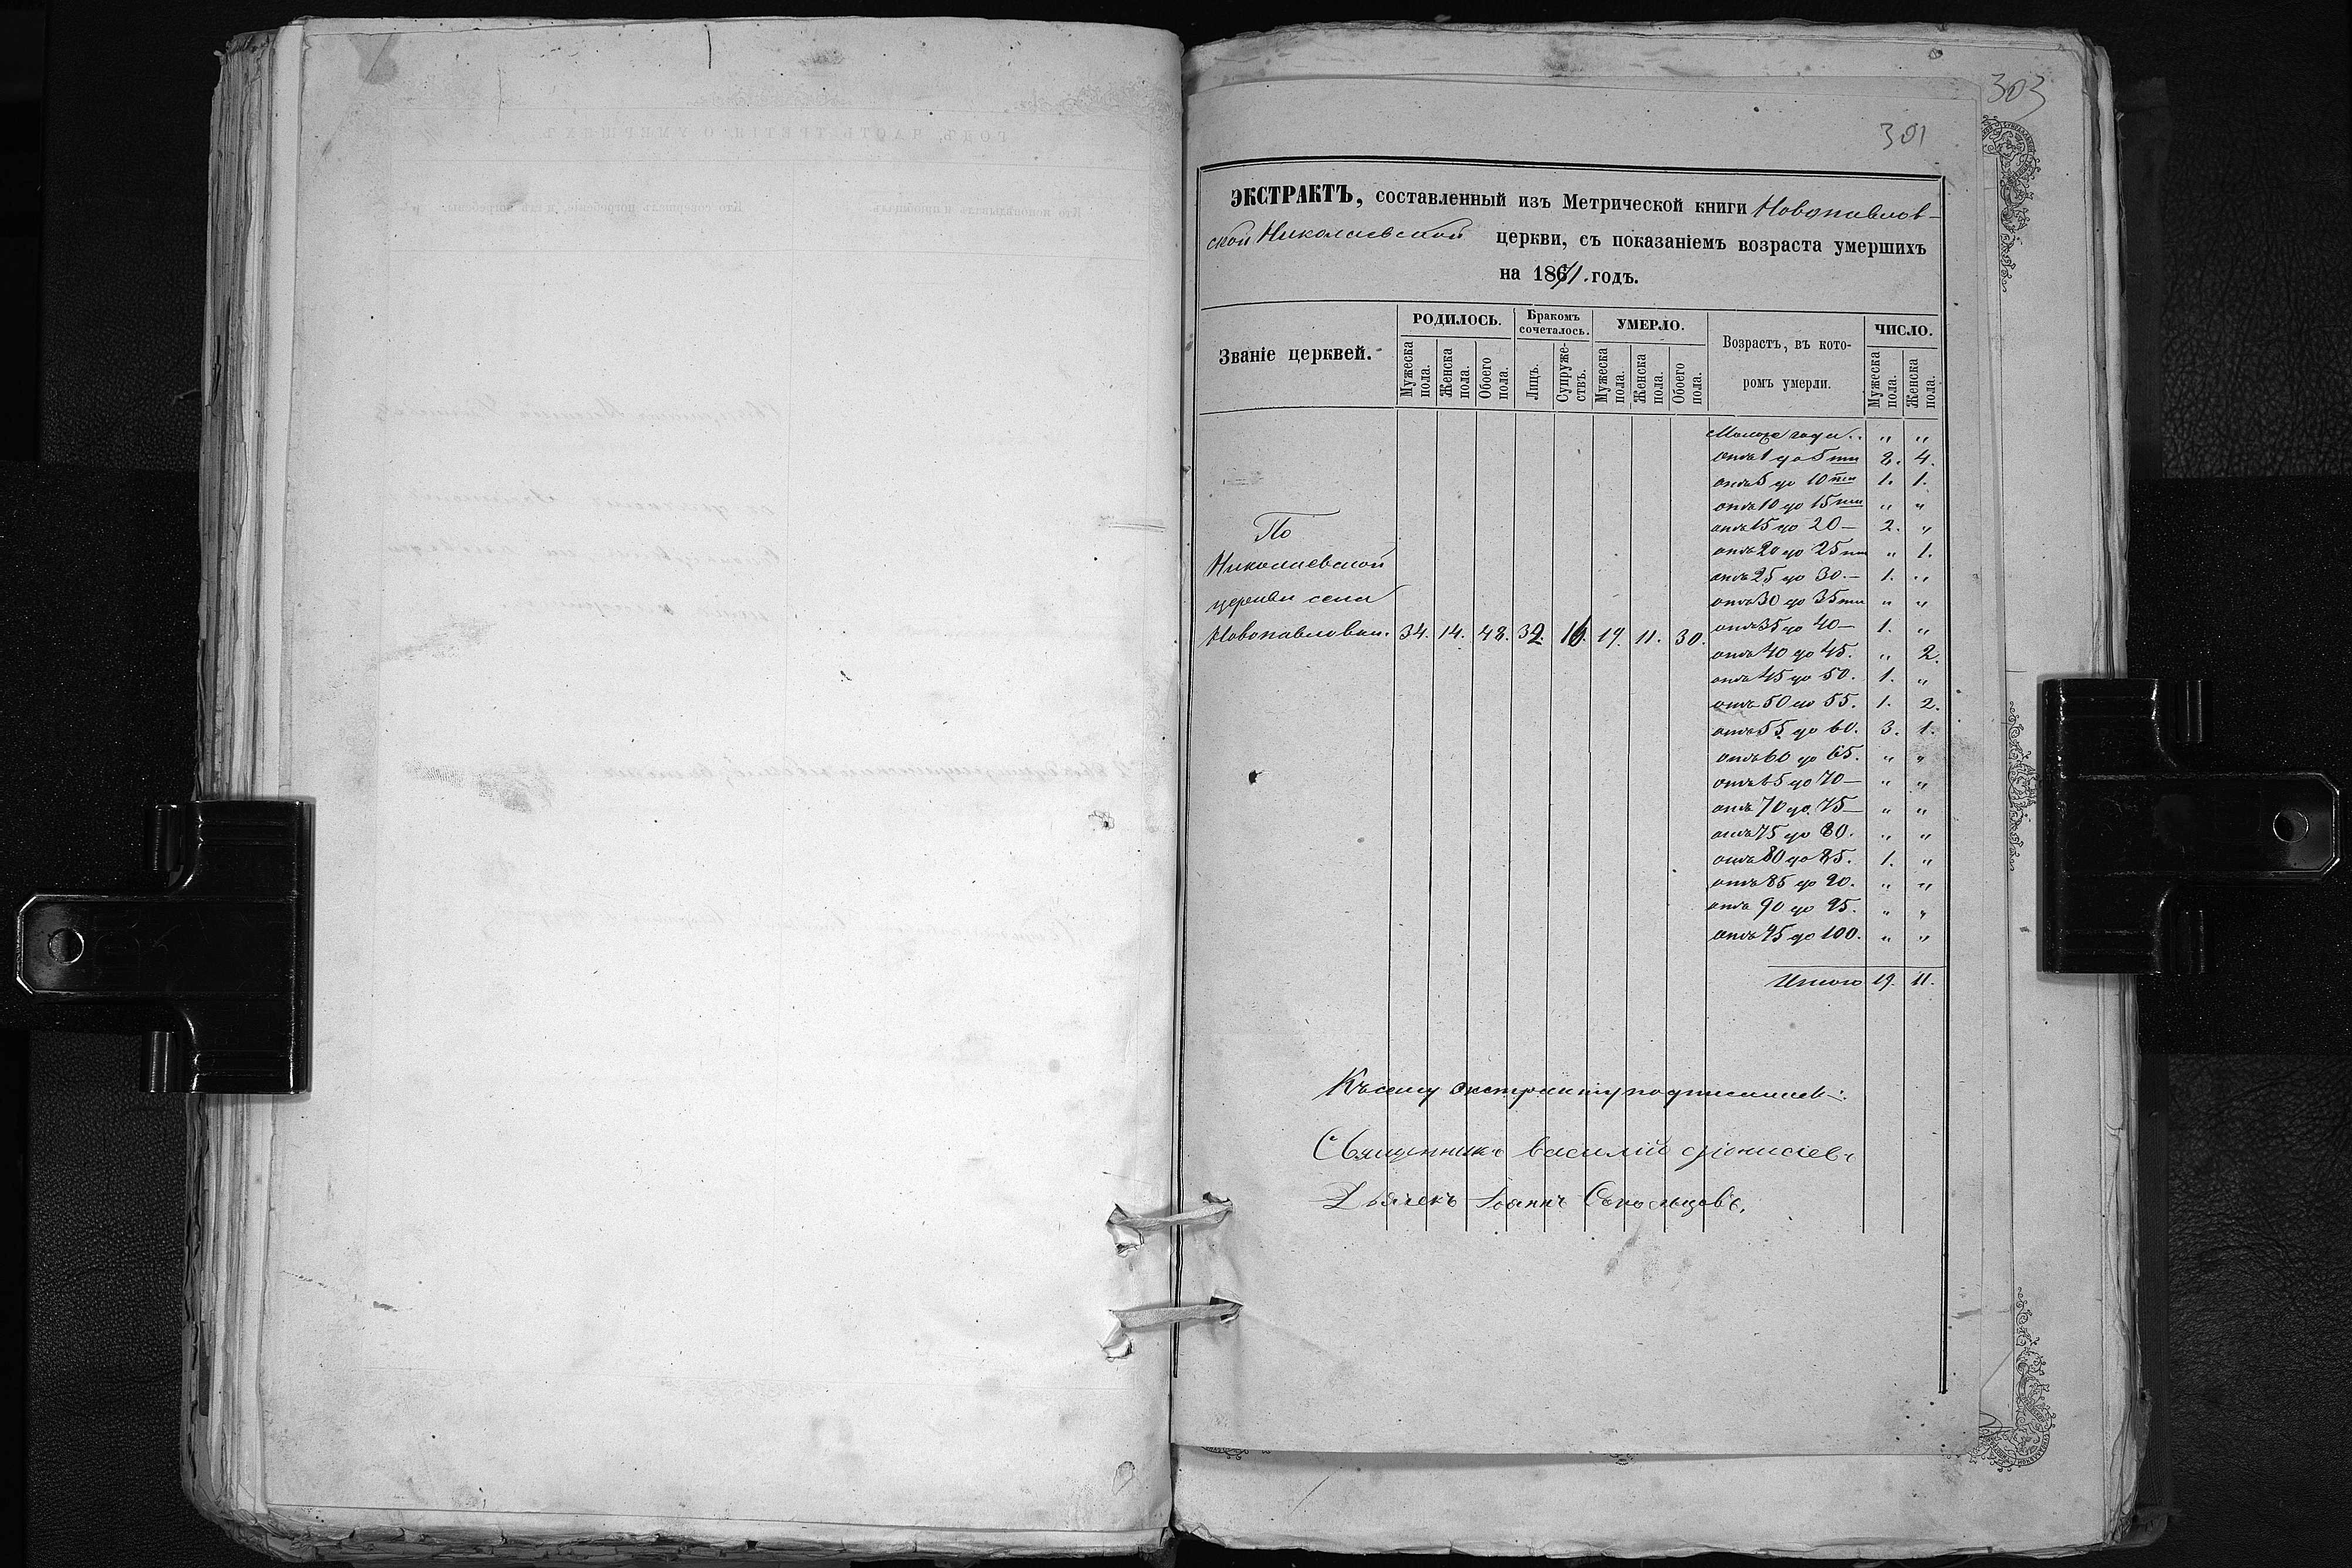 303
301
ЭКСТРАКТЪ, составленный изъ Метрической книги Новопавлов-
ской Николаевской церкви, съ показаніемъ возраста умершихъ
на 1871. годъ.
Званіе церквей. РОДИЛОСЬ. Бракомъ сочеталось. УМЕРЛО. Возрастъ, въ кото-ромъ умерли. ЧИСЛО.
Мужеска пола. Женска пола. Обоего пола. Лицъ. Супруже-ствъ. Мужеска пола. Женска пола. Обоего пола. Мужеска пола. Женска пола.
Моложе года.. " "
отъ 1 до 5ти 8. 4.
отъ 5 до 10ти 1. 1.
отъ 10 до 15ти " "
отъ 15 до 20— 2. "
отъ 20 до 25ти " 1.
отъ 25 до 30.— 1. "
отъ 30 до 35ти " "
отъ 35 до 40— 1. "
отъ 40 до 45. " 2.
отъ 45 до 50. 1. "
отъ 50 до 55. 1. 2.
отъ 55 до 60. 3. 1.
отъ 60 до 65. " "
отъ 65 до 70— " "
отъ 70 до 75— " "
отъ 75 до 80. " "
отъ 80 до 85. 1. "
отъ 85 до 90. " "
отъ 90 до 95. " "
отъ 95 до 100. " "
Итого 19. 11.
По
Николаевской
церкви села
Новопавловки. 34. 14. 48. 32. 16. 19. 11. 30.
Къ сему экстракту подписались:
Священникъ Василій Діонисіевъ
Дьячекъ Іоаннъ